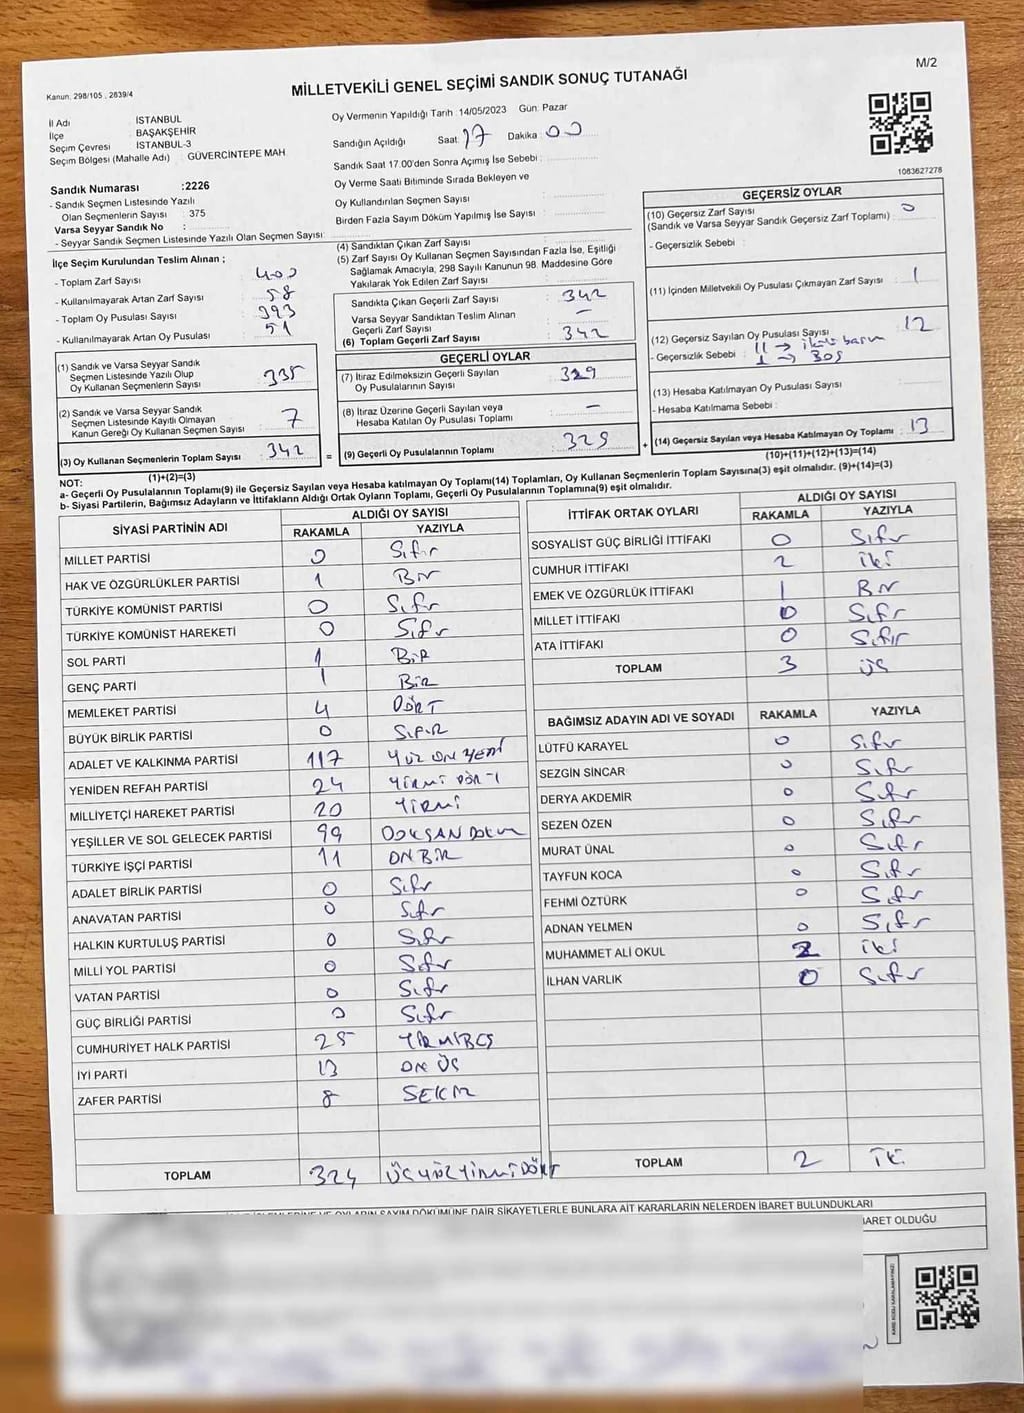 M/2
Kanun, 298/105 , 2839/4
MİLLETVEKİLİ GENEL SEÇİMİ SANDIK SONUÇ TUTANAĞI
İl Adı İSTANBUL
İlçe BAŞAKŞEHİR
Seçim Çevresi İSTANBUL-3
Seçim Bölgesi (Mahalle Adı) GÜVERCİNTEPE MAH
Sandık Numarası :2226
- Sandık Seçmen Listesinde Yazılı
Olan Seçmenlerin Sayısı : 375
Varsa Seyyar Sandık No :
- Seyyar Sandık Seçmen Listesinde Yazılı Olan Seçmen Sayısı:
Oy Vermenin Yapıldığı Tarih :14/05/2023 Gün: Pazar
Sandığın Açıldığı Saat: 17 Dakika: 00
Sandık Saat 17.00'den Sonra Açmış İse Sebebi :
Oy Verme Saati Bitiminde Sırada Bekleyen ve
Oy Kullandırılan Seçmen Sayısı :
Birden Fazla Sayım Döküm Yapılmış İse Sayısı :
1083627278
İlçe Seçim Kurulundan Teslim Alınan ;
- Toplam Zarf Sayısı : 400
- Kullanılmayarak Artan Zarf Sayısı : 58
- Toplam Oy Pusulası Sayısı : 393
- Kullanılmayarak Artan Oy Pusulası : 51
(1) Sandık ve Varsa Seyyar Sandık
Seçmen Listesinde Yazılı Olup
Oy Kullanan Seçmenlerin Sayısı : 335
(2) Sandık ve Varsa Seyyar Sandık
Seçmen Listesinde Kayıtlı Olmayan
Kanun Gereği Oy Kullanan Seçmen Sayısı : 7
(3) Oy Kullanan Seçmenlerin Toplam Sayısı : 342 =
(1)+(2)=(3)
(4) Sandıktan Çıkan Zarf Sayısı :
(5) Zarf Sayısı Oy Kullanan Seçmen Sayısından Fazla İse, Eşitliği
Sağlamak Amacıyla, 298 Sayılı Kanunun 98. Maddesine Göre
Yakılarak Yok Edilen Zarf Sayısı :
Sandıkta Çıkan Geçerli Zarf Sayısı : 342
Varsa Seyyar Sandıktan Teslim Alınan
Geçerli Zarf Sayısı : -
(6) Toplam Geçerli Zarf Sayısı : 342
GEÇERLİ OYLAR
(7) İtiraz Edilmeksizin Geçerli Sayılan
Oy Pusulalarının Sayısı : 329
(8) İtiraz Üzerine Geçerli Sayılan veya
Hesaba Katılan Oy Pusulası Toplamı : -
(9) Geçerli Oy Pusulalarının Toplamı : 329 +
GEÇERSİZ OYLAR
(10) Geçersiz Zarf Sayısı : 0
(Sandık ve Varsa Seyyar Sandık Geçersiz Zarf Toplamı)
- Geçersizlik Sebebi :
(11) İçinden Milletvekili Oy Pusulası Çıkmayan Zarf Sayısı : 1
(12) Geçersiz Sayılan Oy Pusulası Sayısı : 12
- Geçersizlik Sebebi : 11 → ikili basım
1 → BOŞ
(13) Hesaba Katılmayan Oy Pusulası Sayısı :
- Hesaba Katılmama Sebebi :
(14) Geçersiz Sayılan veya Hesaba Katılmayan Oy Toplamı : 13
(10)+(11)+(12)+(13)=(14)
NOT:
a- Geçerli Oy Pusulalarının Toplamı(9) ile Geçersiz Sayılan veya Hesaba katılmayan Oy Toplamı(14) Toplamları, Oy Kullanan Seçmenlerin Toplam Sayısına(3) eşit olmalıdır. (9)+(14)=(3)
b- Siyasi Partilerin, Bağımsız Adayların ve İttifakların Aldığı Ortak Oyların Toplamı, Geçerli Oy Pusulalarının Toplamına(9) eşit olmalıdır.
SİYASİ PARTİNİN ADI ALDIĞI OY SAYISI
RAKAMLA YAZIYLA
MİLLET PARTİSİ 0 Sıfır
HAK VE ÖZGÜRLÜKLER PARTİSİ 1 Bir
TÜRKİYE KOMÜNİST PARTİSİ 0 Sıfır
TÜRKİYE KOMÜNİST HAREKETİ 0 Sıfır
SOL PARTİ 1 BİR
GENÇ PARTİ 1 BİR
MEMLEKET PARTİSİ 4 DÖRT
BÜYÜK BİRLİK PARTİSİ 0 SIFIR
ADALET VE KALKINMA PARTİSİ 117 YÜZ ON YEDİ
YENİDEN REFAH PARTİSİ 24 YİRMİ DÖRT
MİLLİYETÇİ HAREKET PARTİSİ 20 YİRMİ
YEŞİLLER VE SOL GELECEK PARTİSİ 99 DOKSAN DOKUZ
TÜRKİYE İŞÇİ PARTİSİ 11 ON BİR
ADALET BİRLİK PARTİSİ 0 Sıfır
ANAVATAN PARTİSİ 0 Sıfır
HALKIN KURTULUŞ PARTİSİ 0 Sıfır
MİLLİ YOL PARTİSİ 0 Sıfır
VATAN PARTİSİ 0 Sıfır
GÜÇ BİRLİĞİ PARTİSİ 0 Sıfır
CUMHURİYET HALK PARTİSİ 25 YİRMİBEŞ
İYİ PARTİ 13 ON ÜÇ
ZAFER PARTİSİ 8 SEKİZ
TOPLAM 324 ÜÇ YÜZ YİRMİ DÖRT
İTTİFAK ORTAK OYLARI ALDIĞI OY SAYISI
RAKAMLA YAZIYLA
SOSYALİST GÜÇ BİRLİĞİ İTTİFAKI 0 Sıfır
CUMHUR İTTİFAKI 2 iki
EMEK VE ÖZGÜRLÜK İTTİFAKI 1 Bir
MİLLET İTTİFAKI 0 Sıfır
ATA İTTİFAKI 0 Sıfır
TOPLAM 3 üç
BAĞIMSIZ ADAYIN ADI VE SOYADI RAKAMLA YAZIYLA
LÜTFÜ KARAYEL 0 Sıfır
SEZGİN SİNCAR 0 Sıfır
DERYA AKDEMİR 0 Sıfır
SEZEN ÖZEN 0 Sıfır
MURAT ÜNAL 0 Sıfır
TAYFUN KOCA 0 Sıfır
FEHMİ ÖZTÜRK 0 Sıfır
ADNAN YELMEN 0 Sıfır
MUHAMMET ALİ OKUL 2 iki
İLHAN VARLIK 0 Sıfır
TOPLAM 2 iki
OYLARIN SAYIM DÖKÜMÜNE DAİR ŞİKAYETLERLE BUNLARA AİT KARARLARIN NELERDEN İBARET BULUNDUKLARI
İBARET OLDUĞU